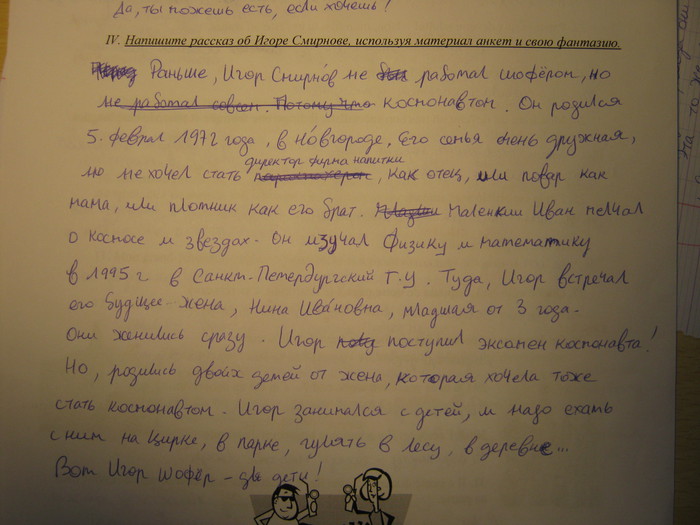 Да, ты можешь есть, если хочешь!
IV. Напишите рассказ об Игоре Смирнове, используя материал анкет и свою фантазию.
Раньше, Игор Смирно́в не работал шофёром, но
не работал совсем. Потому что космонавтом. Он родился
5. феврал 1972 года, в Но́вгороде, Его семья очень дружная,
директор фирма напитки
но не хочел стать, как отец, или повар как
мама, или плотник как его брат. Маленкии Иван мелчал
о космосе и звездах. Он изучал физику и математику
в 1995 г в Санкт-Петердургский Г.У. Туда, Игор встречал
его будущее жена, Нина Ива́новна, младшая от 3 года.
Они женились сразу. Игор поступил эксамен космонавта!
Но, родились двоих детей от жена, которая хочела тоже
стать космонавтом. Игор занимался с детей, и надо ехать
с ним на цирке, в парке, гулять в лесу, в деревне...
Вот Игор шофёр - для дети!